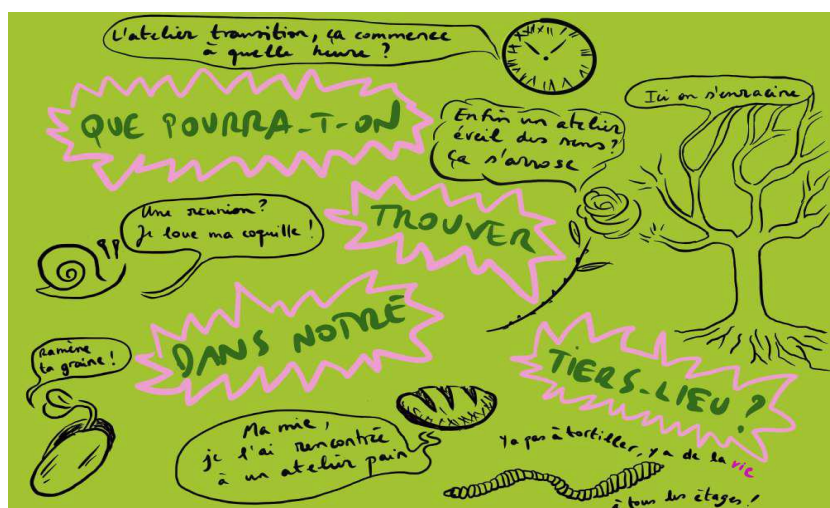 L'atelier transition, ça commence
à quelle heure ?
QUE POURRA-T-ON
Enfin un atelier
éveil des sens ?
Ça s'arrose
Ici on s'enracine
Une réunion ?
Je loue ma coquille !
TROUVER
DANS NOTRE
TIERS-LIEU ?
Ramène
ta graine !
Ma mie,
je l'ai rencontrée
à un atelier pain
Y a pas à tortiller, y a de la vie
à tous les étages !